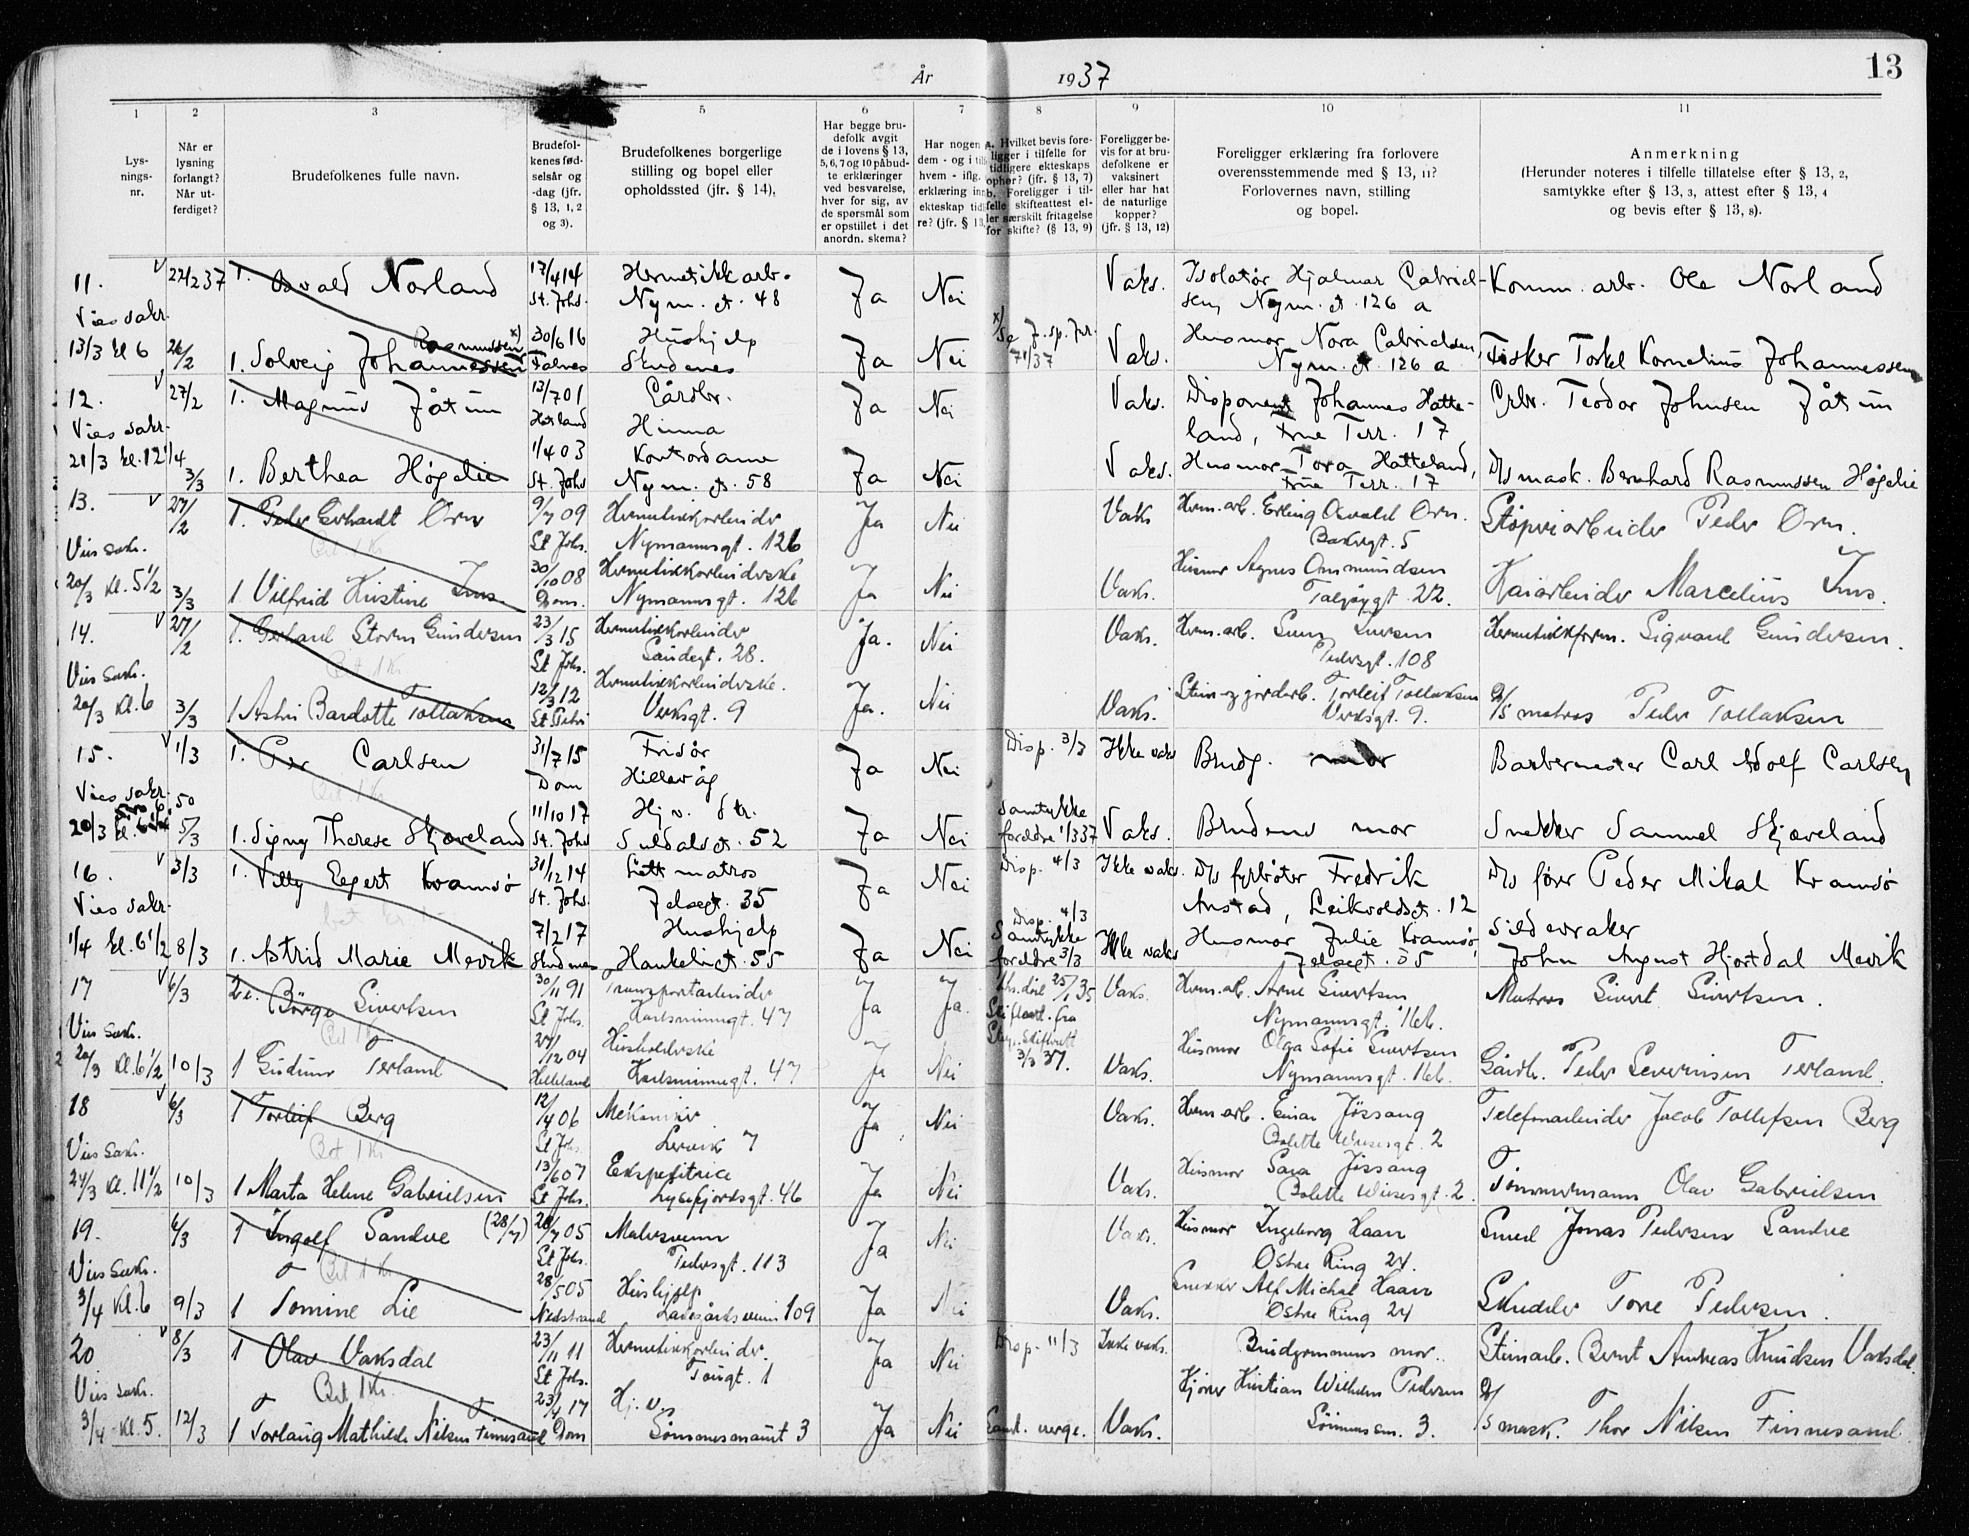 År 1937
13
1 2 3 5 6 7 8 9 10 11
Lys-
nings-
nr.
Når er
lysning
forlangt?
Når ut-
ferdiget?
Brudefolkenes fulle navn.
Brudefol-
kenes fød-
selsår og
-dag (jfr.
§ 13, 1, 2
og 3).
Brudefolkenes borgerlige
stilling og bopel eller
opholdssted (jfr. § 14),
Har begge bru-
defolk avgit
de i lovens § 13,
5, 6, 7 og 10 påbud-
te erklæringer
ved besvarelse,
hver for sig, av
de spørsmål som
er opstillet i det
anordn. skema?
Har nogen a
dem - og i til
hvem - iflg.
erklæring inn
ekteskap tid
re? (jfr. § 13,
Hvilket bevis fore-
ligger i tilfelle for
tidligere ekteskaps
ophør? (jfr. § 13, 7)
b. Foreligger i til-
felle skifteattest el-
ler særskilt fritagelse
for skifte? (§ 13, 9)
Foreligger be-
vis for at bru-
defolkene er
vaksinert
eller har hat
de naturlige
kopper?
(jfr. § 13, 12)
Foreligger erklæring fra forlovere
overensstemmende med § 13, 11?
Forlovernes navn, stilling
og bopel.
Anmerkning
(Herunder noteres i tilfelle tillatelse efter § 13, 2,
samtykke efter § 13, 3, attest efter § 13, 4
og bevis efter § 13, 8).
11. 22/2 37 1. Osvald Norland 17/4 14 St. Johs. Hermetikkarb. Nym. gt. 48 Ja Nei Vaks. Isolatør Hjalmar Gabriel-
sen, Nym. gt. 126 a Komm. arb. Ole Norland
Vies sakr.
13/3 kl 6 26/2 1. Solveig Johannessen Rasmussen x) 30/6 16 Falnes Hushjelp Skudenes Ja Nei x) Se J. sp. jnr. 71/37 Vaks. Husmor Nora Gabrielsen,
Nym. gt. 126 a Fisker Torkel Kornelius Johannessen
12. 27/2 1. Magnus Jåtun 13/7 01 Hetland Gårdbr. Hinna Ja Nei Vaks. Disponent Johannes Hatte-
land, Frue Terr. 17 Grbr. Teodor Johnsen Jåtun
Vies sakr.
21/3 kl. 12 1/4 3/3 1. Berthea Høgelie 1/4 03 St. Johs Kontordame Nym. gt. 58 Ja Nei Vaks. Husmor Tora Hatteland,
Frue Terr. 17 D/s mask. Bernhard Rasmussen Høgelie
13. 27/2 1. Peder Gerhardt Orn 9/7 09 St Johs. Hermetikkarbeider Nymannsgt. 126 Ja Nei Vaks Herm. arb. Erling Osvald Orn.
Bakergt. 5 Støperiarbeider Peder Orn.
Bet 1 Kr
Vies sakr.
20/3 Kl. 5 1/2 3/3 1 Vilfrid Kristine Ims 30/10 08 Dom. Hermetikkarbeiderske Nymannsgt. 126 Ja Nei Vaks. Husmor Agnes Ommundsen
Taljøygt. 22. Kaiarbeider Marcelius Ims.
14. 27/2 1. Gerhard Storm Gundersen 23/3 15 St Johs. Hermetikkarbeider Sandegt. 28. Ja. Nei Vaks. Herm. arb.
Pedersgt. 108 Hermetikkform. Sigvard Gundersen.
Bet 1 Kr
Vies Sakr.
20/3 Kl. 6 3/3 1 Astri Bardotte Tollaksen 12/3 12 St Petri Hermetikkarbeiderske. Verksgt. 9 Ja. Nei Vaks. Stein- og jordarb. Torleif Tollaksen
Verksgt. 9. D/s matros Peder Tollaksen
15. 1/3 1. Per Carlsen 31/7 15 Dom Frisør Hillevåg Ja Nei Disp. 3/3 Ikke vaks Brudg. mor Barbermester Carl Adolf Carlsen
Bet 1 Kr
Vies sakr.
20/3 5/3 1. Signy Therese Skjæveland 11/10 17 St. Johs Hj. v. d tr. Suldalsgt. 52 Ja Nei Samtykke foreldre 1/3 37 Vaks. Brudens mor Snekker Samuel Skjæveland
16. 3/3 1. Villy Eegert Kramsø 31/12 14 St. Johs. Lettmatros Jelsagt. 35 Ja Nei Disp. 4/3 Ikke vaks. D/s fyrbøter Fredrik
Anstad, Leikvoldsgt. 12 D/s fører Peder Mikal Kramsø
Vies sakr.
1/4 kl. 6 1/2 8/3 1. Astrid Marie Mevik 7/2 17 Skudenes Hushjelp Haukeligt. 55 Ja Nei Disp. 4/3 Samtykke foreldre 3/3 Ikke vaks Husmor Julie Kramsø,
Jelsagt. 35 Sildevraker
John August Hjortdal Mevik
17 6/3 2 e. Börge Sivertsen 30/11 91 St Johs. Transportarbeider Karlsminnegt. 47 Ja Ja. 25/1 35 Skifteatt. fra Stvg. Skifterett 3/3 37. Vaks. Herm. arb. Arne Sivertsen
Nymannsgt. 16b. Matros Sivert Sivertsen.
Bet 1 Kr
Vies Sakr.
20/3 Kl. 6 1/2 10/3 1 Gudrun Terland 27/12 04 Helleland Husholderske Karlsminnegt. 47 Ja Nei Vaks. Husmor Olga Sofie Sivertsen
Nymannsgt. 16b. Gårdb. Peder Severinsen Terland.
18 6/3 1 Torleif Berg 12/4 06 St Johs. Mekaniker Lervik 7 Ja Nei Vaks. Herm. arb. Einar Jössang
Bolette Wiesesgt. 2 Telefonarbeider Jacob Tollefsen Berg
Bet 1 Kr
Vies Sakr.
27/3 Kl. 11 1/2 10/3 1 Marta Helene Gabrielsen 13/6 07 St Johs. Ekspeditrice Lysefjordsgt. 46 Ja Nei Vaks. Husmor Sara Jössang
Bolette Wiesesgt. 2. Tömmermann Olav Gabrielsen
19. 6/3 1 Ingolf Sandve (28/7) 28/7 05 St Johs. Malersvenn Pedersgt. 113 Ja Nei Vaks. Husmor Ingeborg Haan
Østre Ring 24. Smed Jonas Pedersen Sandve
Bet 1 Kr
Vies Sakr.
3/4 Kl. 6 9/3 1 Tomine Lie 28/5 05 Nedstrand Hushjelp Ladegårdsveien 109 Ja Nei Vaks. Snekker Alf Michal Haan
Østre Ring 24 Skredder Tore Pedersen.
20 8/3 1 Olav Vaksdal 23/11 11 St Johs. Hermetikkarbeider. Tougt. 1 Ja Nei Disp. 11/3 Ikke vaks. Brudgommens mor. Steinarb. Bernt Andreas Knudsen Vaksdal
Bet 1 Kr.
Vies sakr.
3/4 Kl. 5. 12/3 1 Torlaug Mathilde Nilsen Finnesand 23/4 17 Dom Hj. v. Sömmesmauet 3 Ja Nei Samt. verge. Vaks. Kjörer Kristian Wilhelm Pedersen
3. D/s mask. Thor Nilsen Finnesand.